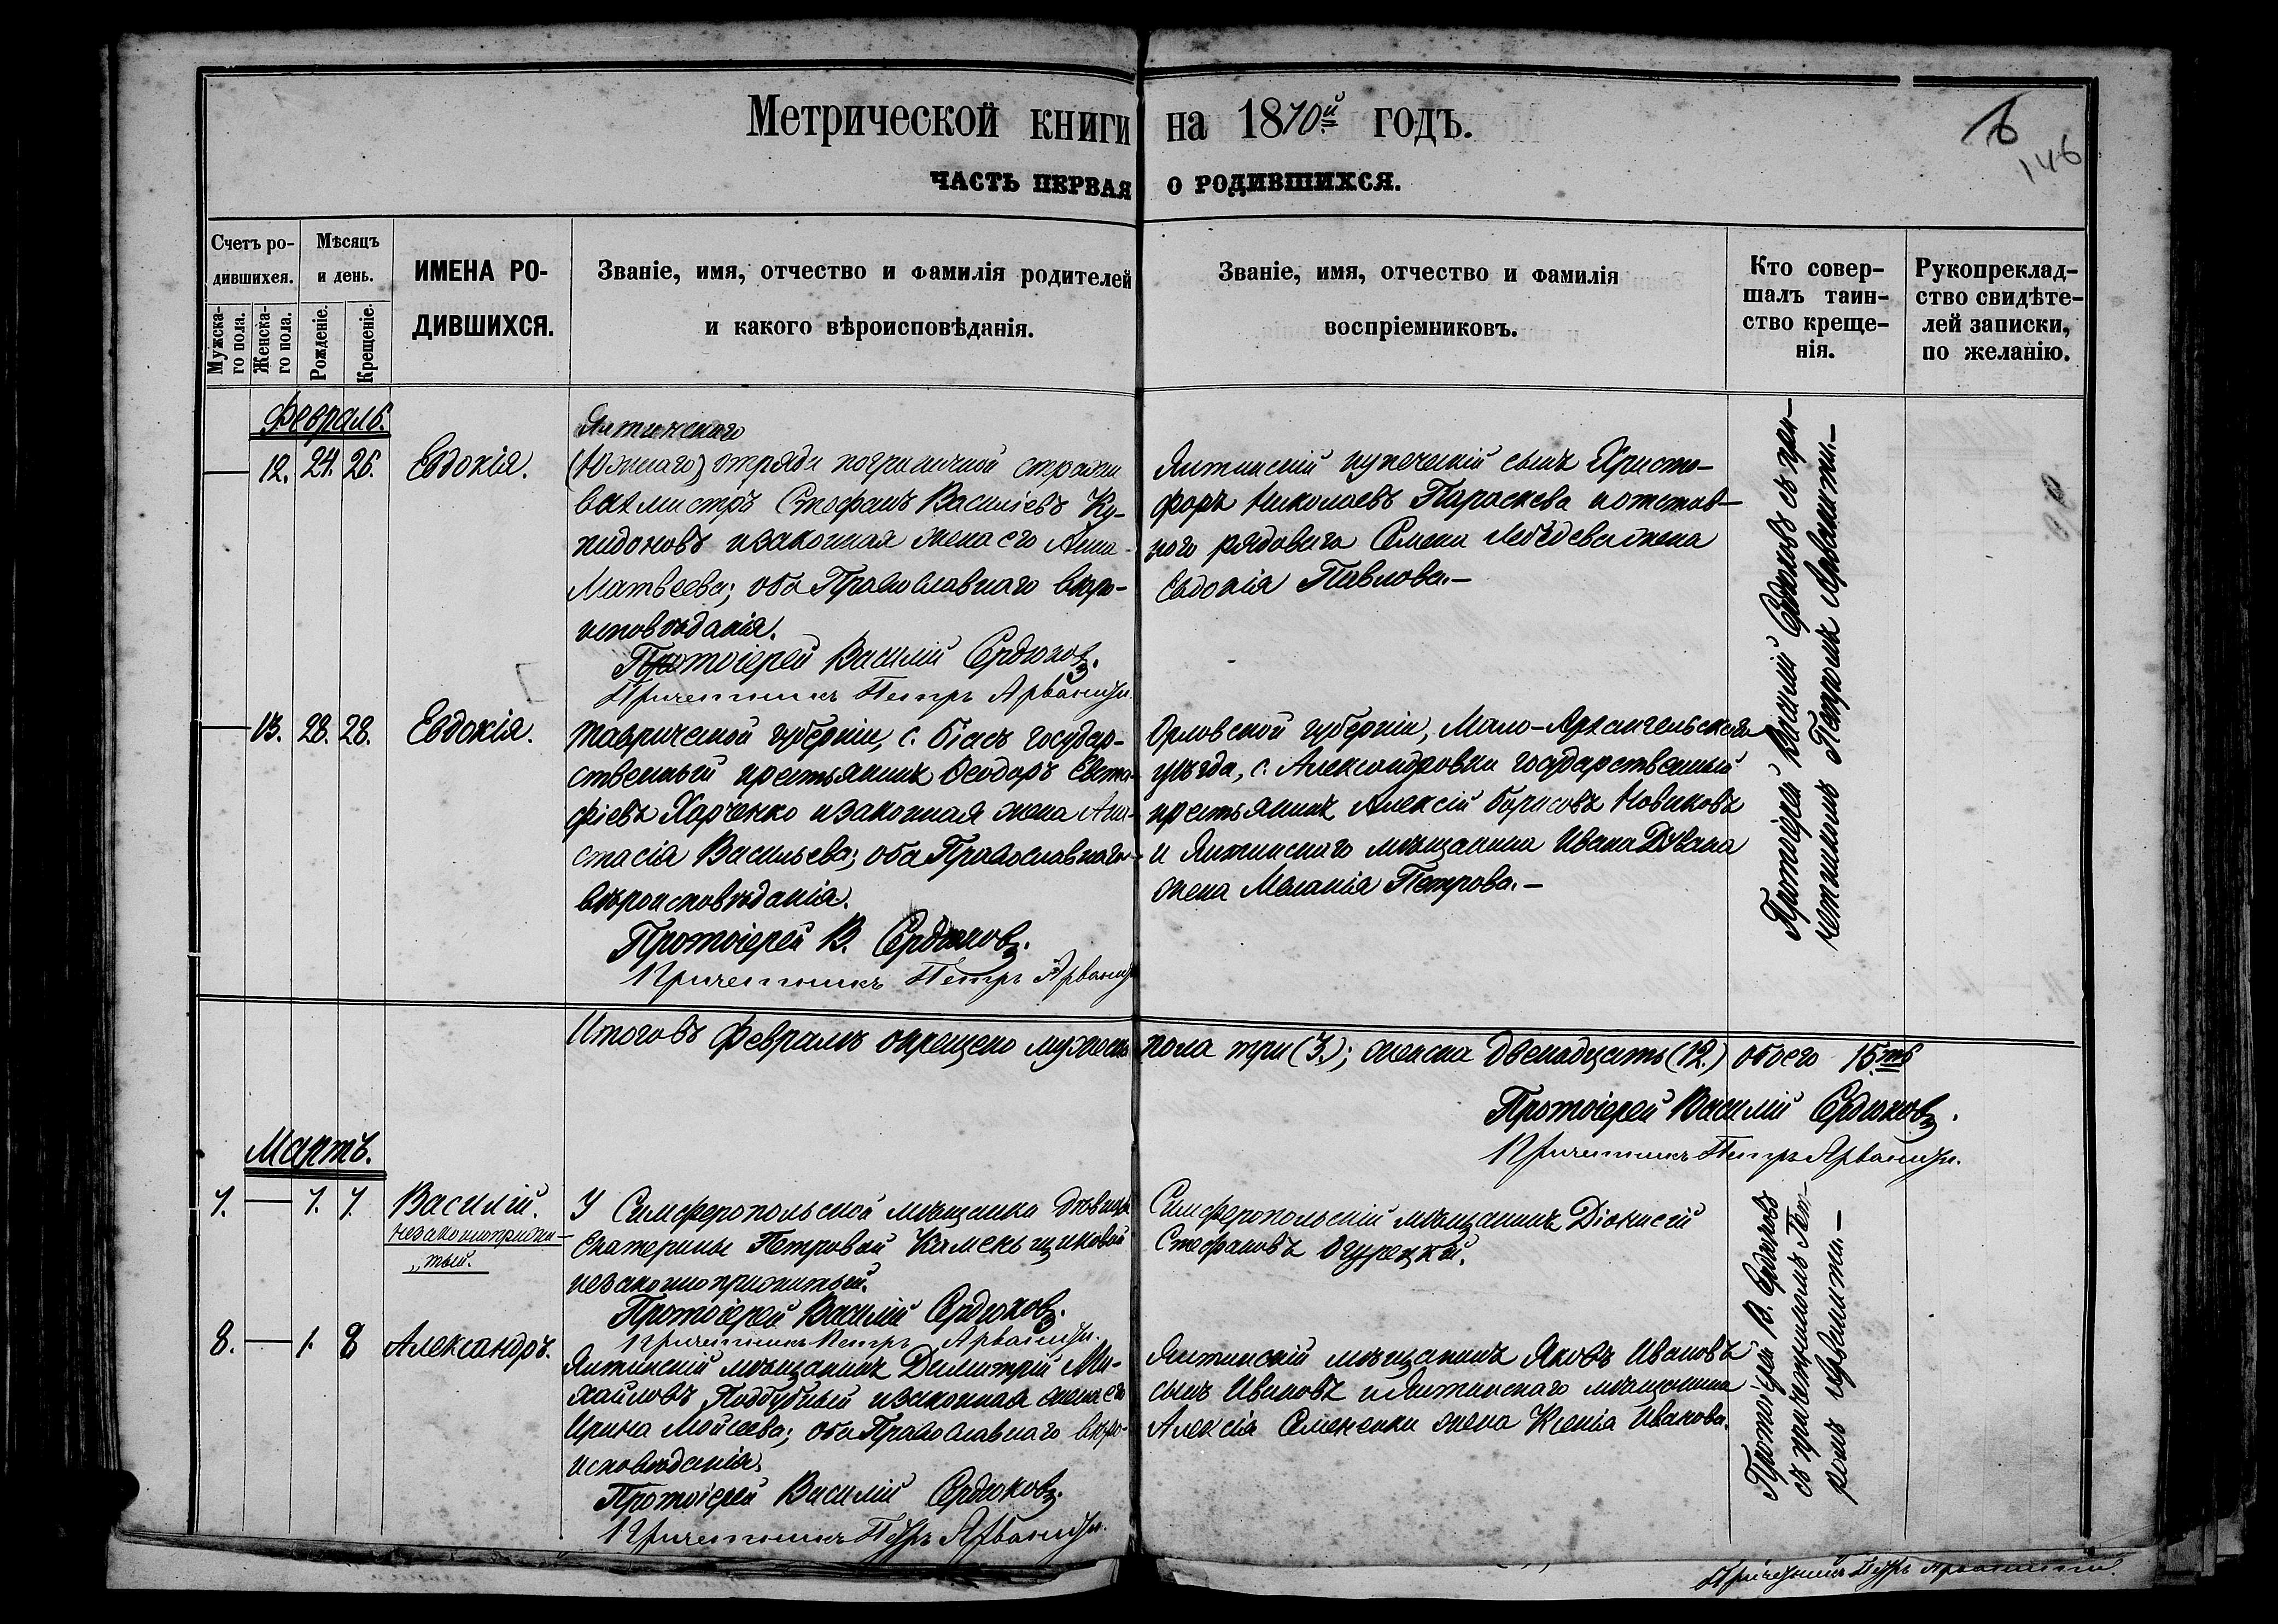 Метрической книги на 1870й годъ.
6
146
ЧАСТЬ ПЕРВАЯ О РОДИВШИХСЯ.
Счетъ родившихся.
Мужскаго пола.
Женскаго пола.
Мѣсяцъ и день.
Рожденіе.
Крещеніе.
ИМЕНА РО-
ДИВШИХСЯ.
Званіе, имя, отчество и фамилія родителей
и какого вѣроисповѣданія.
Званіе, имя, отчество и фамилія
воспріемниковъ.
Кто совер-
шалъ таин-
ство креще-
нія.
Рукоприклад-
ство свидѣте-
лей записки,
по желанію.
Февраль.
— 12. 24. 26. Евдокія.
Ялтинскаго
(Южнаго) отряда пограничной стражи
вахмистръ Стефанъ Василіевъ Ку-
пидоновъ и законная жена его Анна
Матвеева; оба Православнаго вѣро-
исповѣданія.
Протоіерей Василій Сердюковъ.
Причетникъ Петръ Арванити.
Ялтинскій купеческій сынъ Христо-
форъ Николаевъ Параскева и отстав-
ного рядоваго Семена Лебѣдева жена
Евдокія Павлова.—
Протоіерей Василій Сердюковъ съ при-
четникомъ Петромъ Арванити.—
— 13. 28. 28. Евдокія.
Таврической губерніи, с. Біасъ государ-
ственный крестьянинъ Ѳеодоръ Евста-
фіевъ Харченко и законная жена Ана-
стасія Васильева; оба Православнаго
вѣроисповѣданія.
Протоіерей В. Сердюковъ.
Причетникъ Петръ Арванити
Орловской губерніи, Мало-Архангельскаго
уѣзда, с. Александровки государственный
крестьянинъ Алексій Борисовъ Новиковъ
и Ялтинскаго мѣщанина Ивана Дувана
жена Меланія Петрова.—
Итого въ Февралѣ окрещено мужеска пола три (3.); женска двенадцать (12.) обоего 15.ть
Протоіерей Василій Сердюковъ.
Причетникъ Петръ Арванити.
Мартъ.
7. — 7. 7. Василій.
Незаконноприжи-
„тый.
У Симферопольской мѣщанки дѣвицы
Екатерины Петровой Каменьщиковой
незаконноприжитый.
Протоіерей Василій Сердюковъ.
Причетникъ Петръ Арванити.
Симферопольскій мѣщанинъ Діонисій
Стефановъ Огурецкій.
Протоіерей В. Сердюковъ
съ причетникомъ Пет-
ромъ Арванити.—
8. — 1. 8 Александръ.
Ялтинскій мѣщанинъ Димитрій Ми-
хайловъ Поддубный и законная жена его
Ирина Мойсеева; оба Православнаго вѣро-
исповѣданія.
Протоіерей Василій Сердюковъ.
Причетникъ Петръ Арванити.
Ялтинскій мѣщанинъ Яковъ Ивановъ
сынъ Ивановъ и Ялтинскаго мѣщанина
Алексія Семененки жена Ксенія Иванова.
Причетникъ Петръ Арванити.